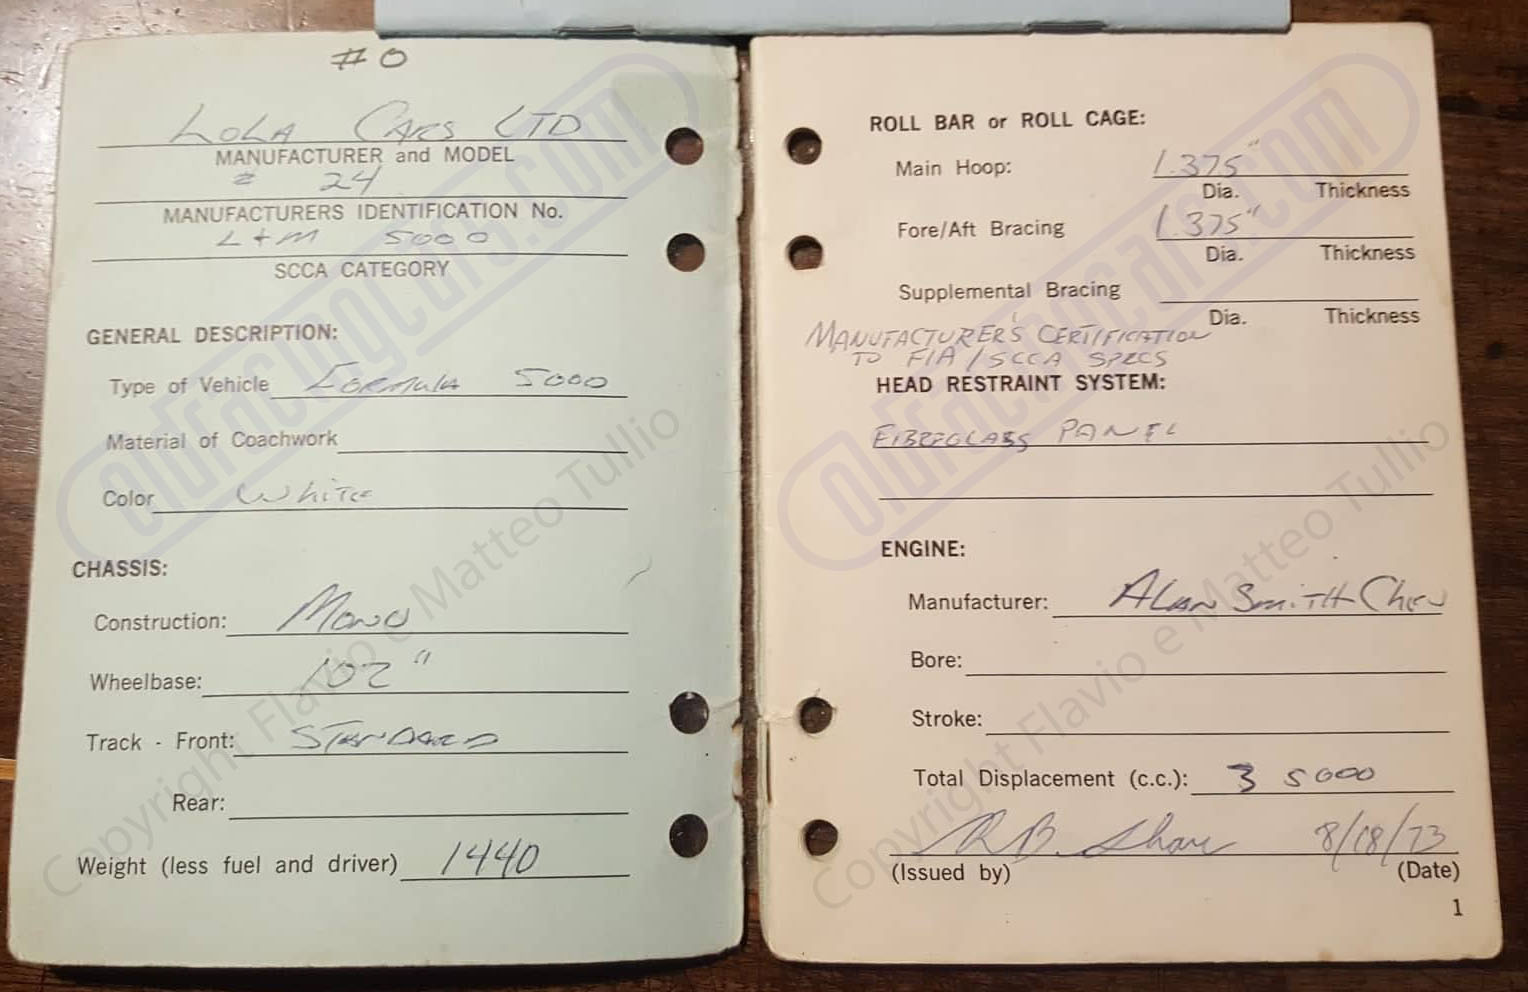 # 0
LOLA CARS LTD
MANUFACTURER and MODEL
# 24
MANUFACTURERS IDENTIFICATION No.
L+M 5000
SCCA CATEGORY
GENERAL DESCRIPTION:
Type of Vehicle FORMULA 5000
Material of Coachwork
Color WHITE
CHASSIS:
Construction: MONO
Wheelbase: 102"
Track - Front: STANDARD
Rear:
Weight (less fuel and driver) 1440
ROLL BAR or ROLL CAGE:
Main Hoop: 1.375"
Dia. Thickness
Fore/Aft Bracing 1.375"
Dia. Thickness
Supplemental Bracing
Dia. Thickness
MANUFACTURER'S CERTIFICATION
TO FIA / SCCA SPECS
HEAD RESTRAINT SYSTEM:
FIBREGLASS PANEL
ENGINE:
Manufacturer: ALAN SMITH CHEV
Bore:
Stroke:
Total Displacement (c.c.): 5000
8/18/73
(Issued by) (Date)
1
oldracingcars.com
Copyright Flavio e Matteo Tullio
oldracingcars.com
Copyright Flavio e Matteo Tullio